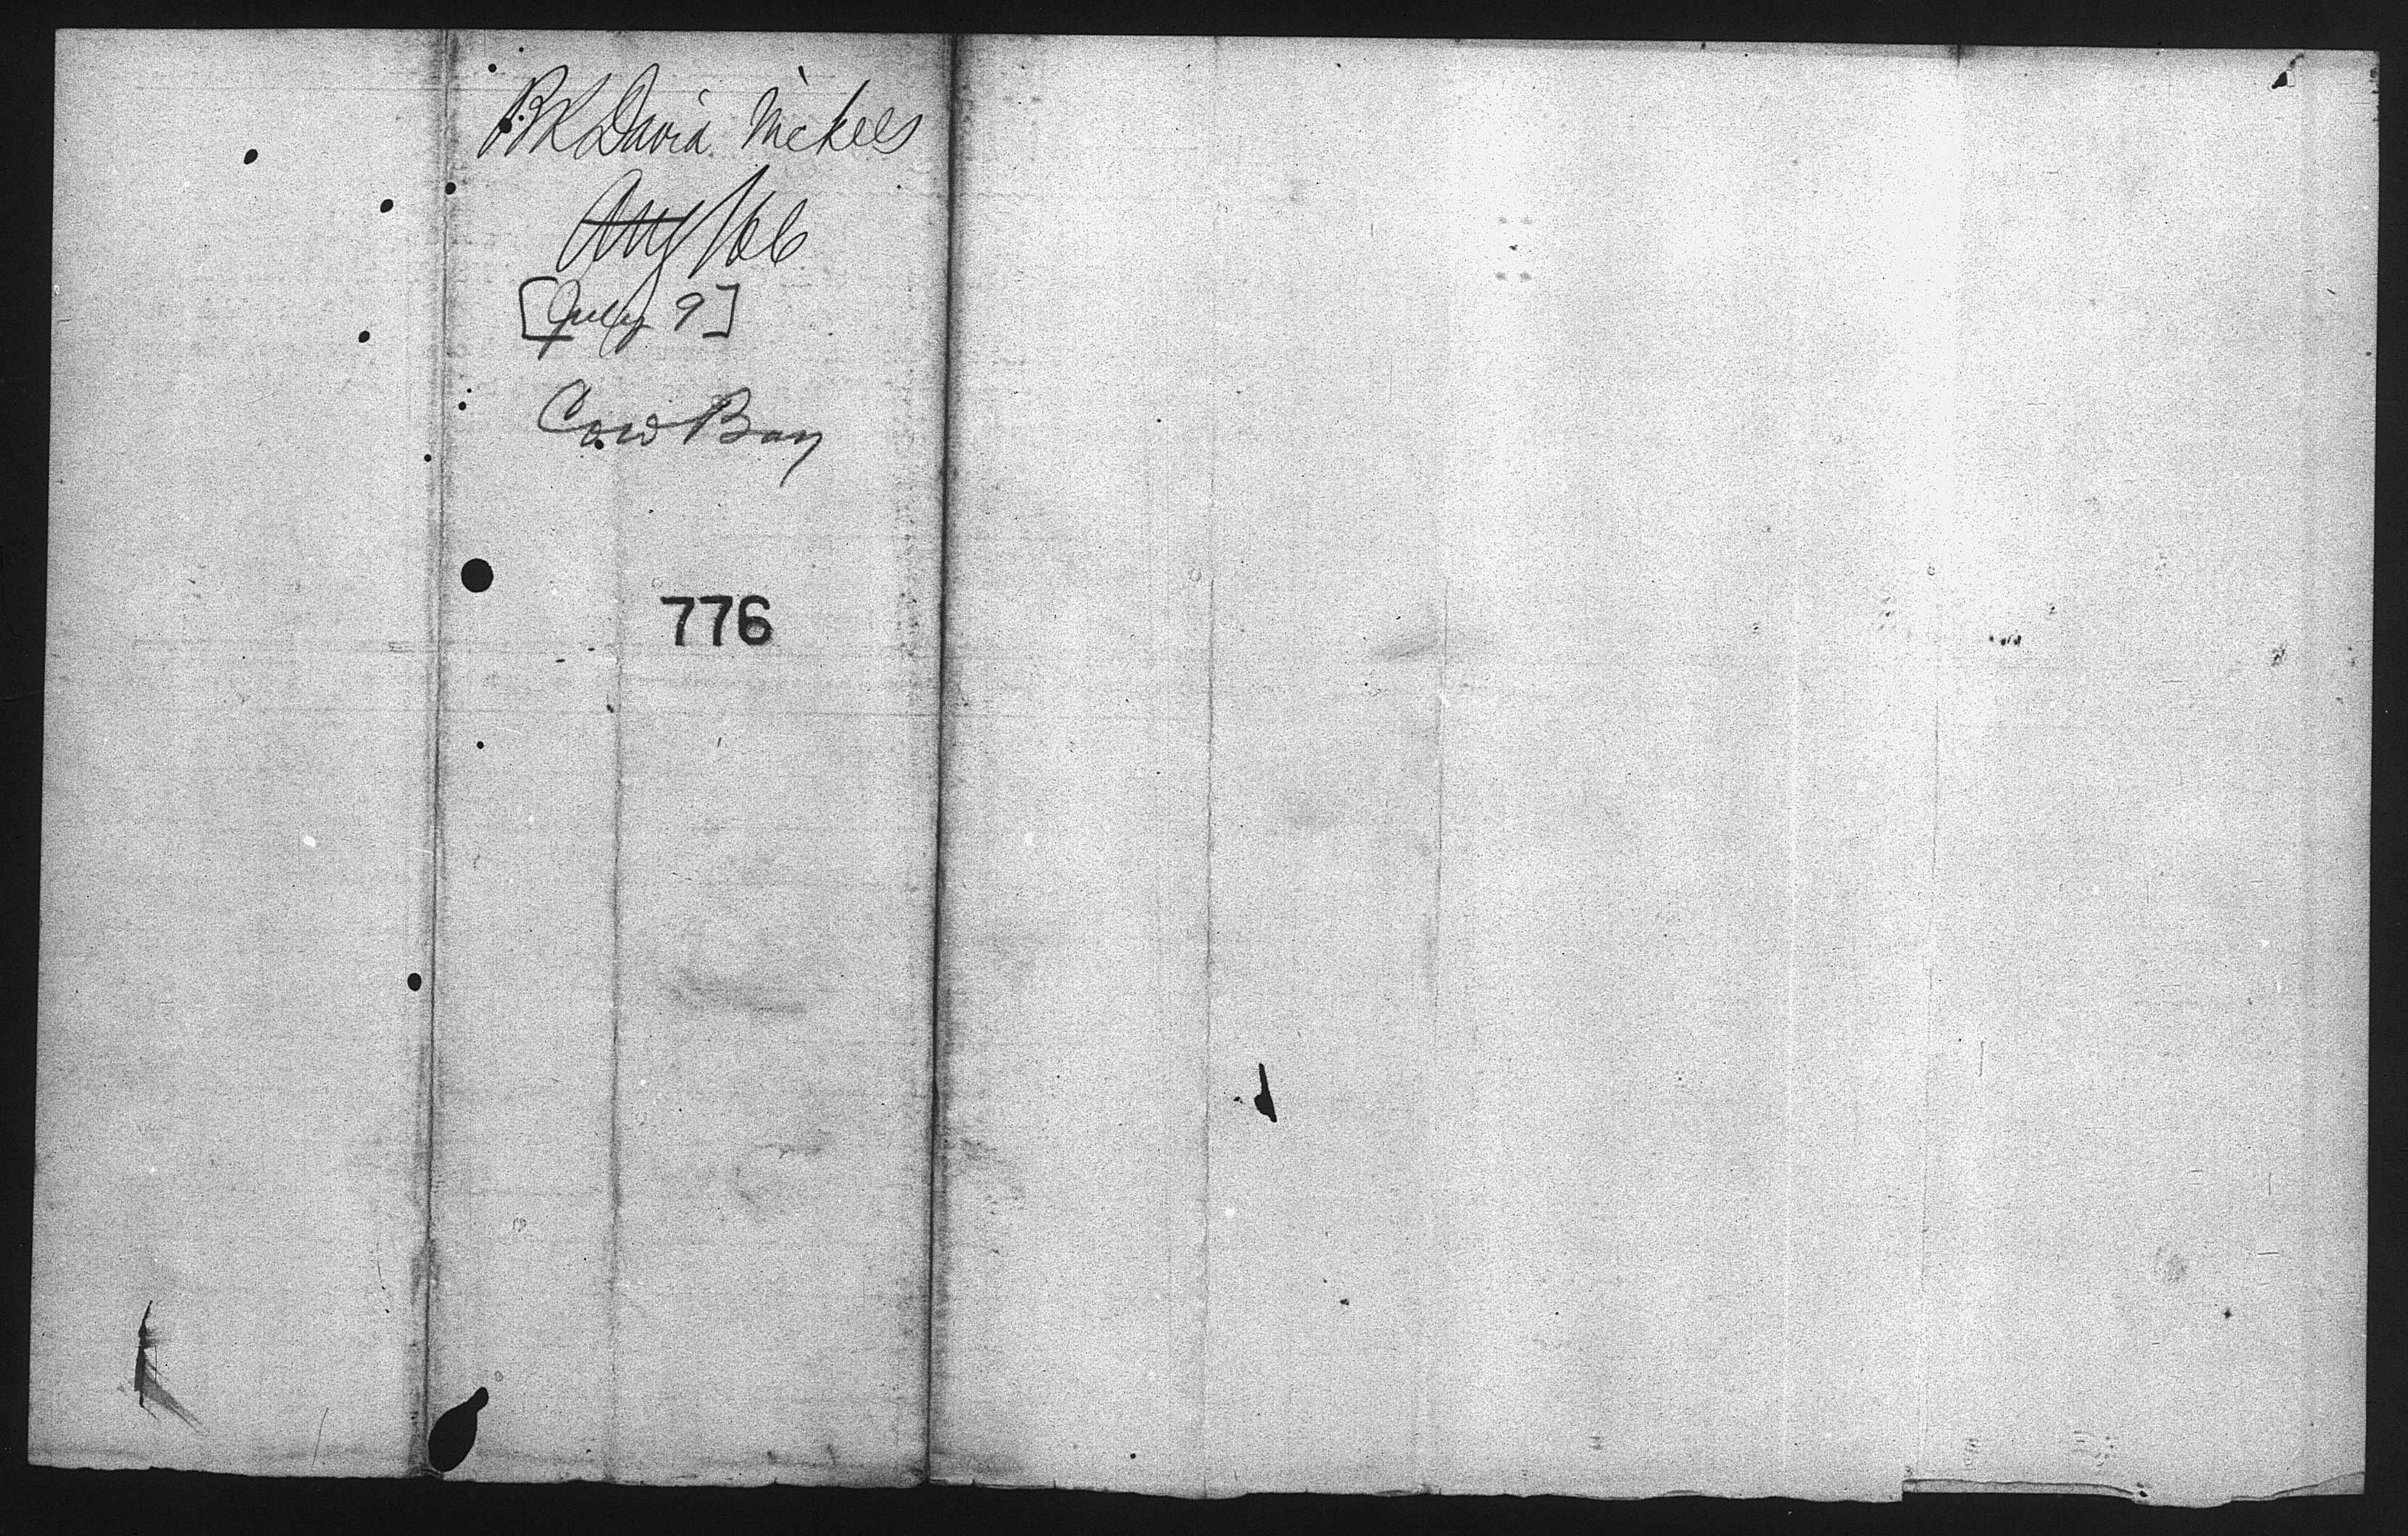 Bk David Nickels
Aug 166
[July 9]
Cow Bay
776